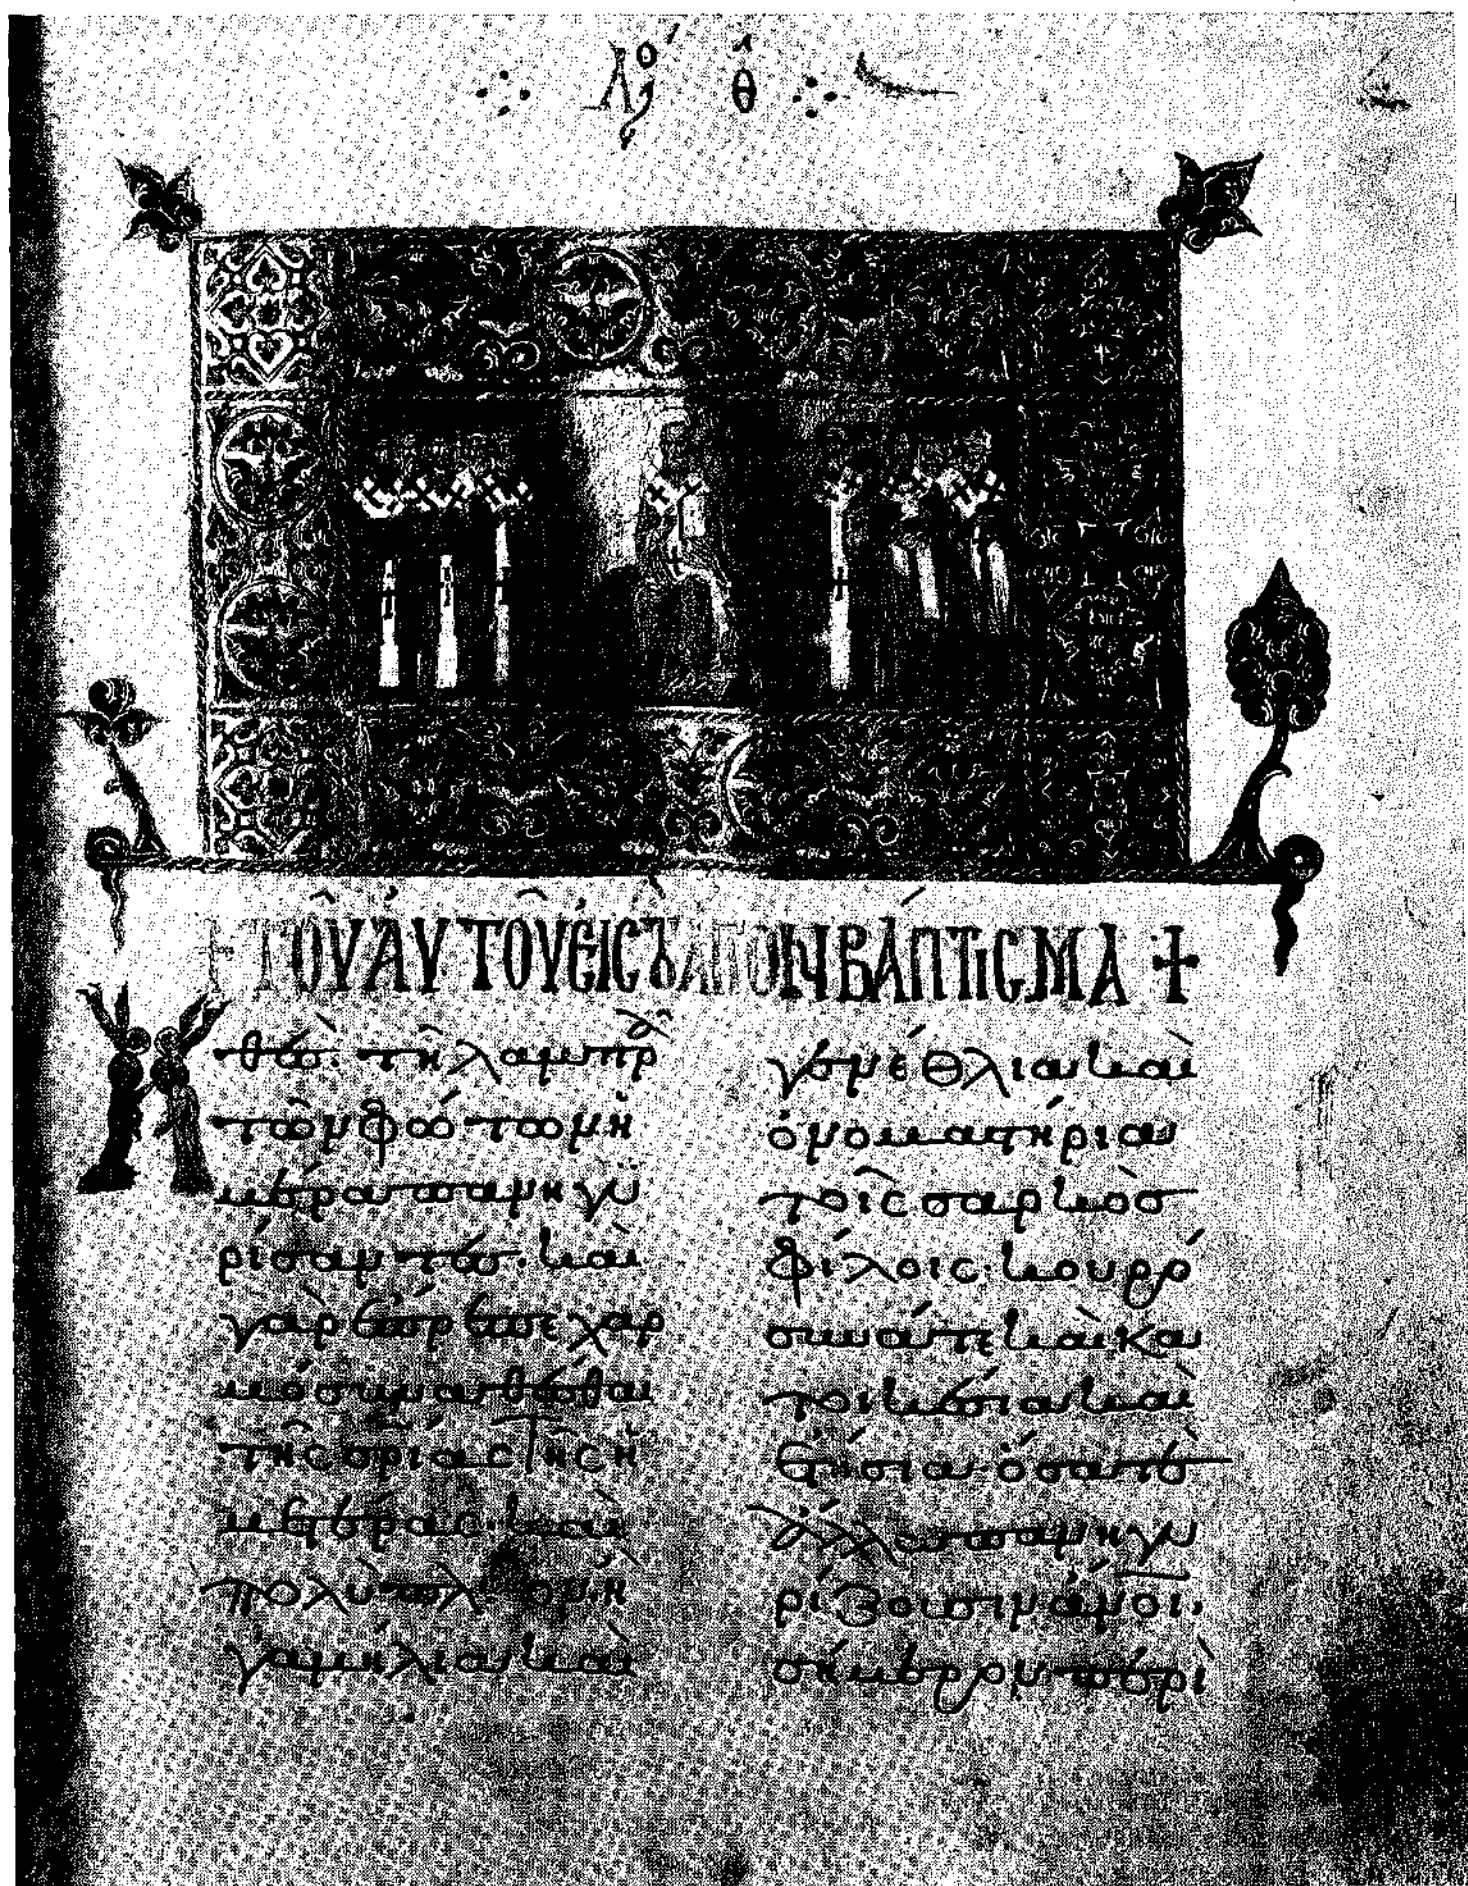 Λό(γος) θ
+ ΤΟῦ ΑὐΤΟῦ ΕἰC Τὸ ἍΓΙΟΝ ΒΆΠΤΙCΜΑ +
Χθές· τῆ λαμπρᾶ
τῶν φώτων ἡ
μέρα πανηγυ
ρίσαντες· καὶ
γὰρ ἔπρεπε χαρ
μόσυνα θέσθαι
τῆς σρίας τῆς ἡ
μετέρας· καὶ
πολὺ πλέον ἢ
γαμήλια καὶ
γενέθλια καὶ
ὀνομαστήρια
τοῖς σαρκὸς
φίλοις· κουρό
συνά τε καὶ κα
τοικέσια καὶ
ἐτήσια· ὅσα τὲ
ἄλλα πανηγυ
ρίζουσιν ἄνοι·
σήμερον περὶ